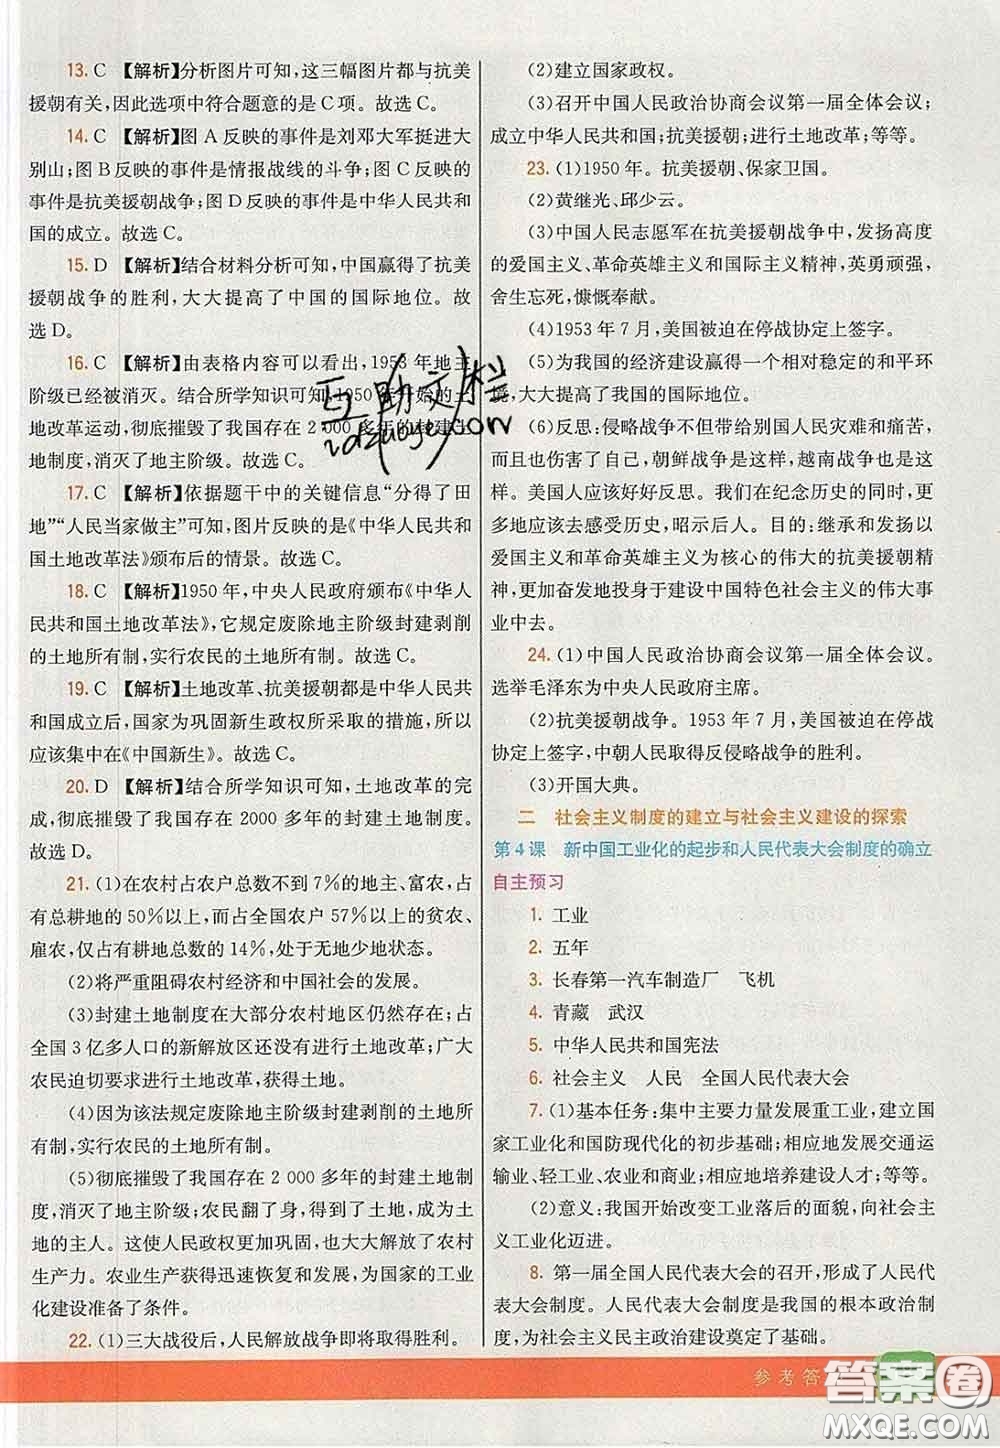 13. C 【解析】分析图片可知,这三幅图片都与抗美
援朝有关,因此选项中符合题意的是C项。故选C。
14. C 【解析】图A反映的事件是刘邓大军挺进大
别山;图B反映的事件是情报战线的斗争;图C反映的
事件是抗美援朝战争;图D反映的事件是中华人民共和
国的成立。故选C。
15. D 【解析】结合材料分析可知,中国赢得了抗美
援朝战争的胜利,大大提高了中国的国际地位。故
选D。
16. C 【解析】由表格内容可以看出,1953年地主
阶级已经被消灭。结合所学知识可知,1950年开始的土
地改革运动,彻底摧毁了我国存在2 000多年的封建土
地制度,消灭了地主阶级。故选C。
17. C 【解析】依据题干中的关键信息“分得了田
地”“人民当家做主”可知,图片反映的是《中华人民共和
国土地改革法》颁布后的情景。故选C。
18. C 【解析】1950年,中央人民政府颁布《中华人
民共和国土地改革法》,它规定废除地主阶级封建剥削
的土地所有制,实行农民的土地所有制。故选C。
19. C 【解析】土地改革、抗美援朝都是中华人民共
和国成立后,国家为巩固新生政权所采取的措施,所以
应该集中在《中国新生》。故选C。
20. D 【解析】结合所学知识可知,土地改革的完
成,彻底摧毁了我国存在2000多年的封建土地制度。
故选D。
21. (1)在农村占农户总数不到7%的地主、富农,占
有总耕地的50%以上,而占全国农户57%以上的贫农、
雇农,仅占有耕地总数的14%,处于无地少地状态。
(2)将严重阻碍农村经济和中国社会的发展。
(3)封建土地制度在大部分农村地区仍然存在;占
全国3亿多人口的新解放区还没有进行土地改革;广大
农民迫切要求进行土地改革,获得土地。
(4)因为该法规定废除地主阶级封建剥削的土地所
有制,实行农民的土地所有制。
(5)彻底摧毁了我国存在2 000多年的封建土地制
度,消灭了地主阶级;农民翻了身,得到了土地,成为
土地的主人。这使人民政权更加巩固,也大大解放了农村
生产力。农业生产获得迅速恢复和发展,为国家的工业
化建设准备了条件。
22. (1)三大战役后,人民解放战争即将取得胜利。
(2)建立国家政权。
(3)召开中国人民政治协商会议第一届全体会议;
成立中华人民共和国;抗美援朝;进行土地改革;等等。
23. (1)1950年。抗美援朝、保家卫国。
(2)黄继光、邱少云。
(3)中国人民志愿军在抗美援朝战争中,发扬高度
的爱国主义、革命英雄主义和国际主义精神,英勇顽强,
舍生忘死,慷慨奉献。
(4)1953年7月,美国被迫在停战协定上签字。
(5)为我国的经济建设赢得了一个相对稳定的和平环
境,大大提高了我国的国际地位。
(6)反思:侵略战争不但带给别国人民灾难和痛苦,
而且也伤害了自己,朝鲜战争是这样,越南战争也是这
样。美国人应该好好反思。我们在纪念历史的同时,更
多地应该去感受历史,昭示后人。目的:继承和发扬以
爱国主义和革命英雄主义为核心的伟大的抗美援朝精
神,更加奋发地投身于建设中国特色社会主义的伟大事
业中去。
24. (1)中国人民政治协商会议第一届全体会议。
选举毛泽东为中央人民政府主席。
(2)抗美援朝战争。1953年7月,美国被迫在停战
协定上签字,中朝人民取得反侵略战争的胜利。
(3)开国大典。
二 社会主义制度的建立与社会主义建设的探索
第4课 新中国工业化的起步和人民代表大会制度的确立
自主预习
1. 工业
2. 五年
3. 长春第一汽车制造厂 飞机
4. 青藏 武汉
5. 中华人民共和国宪法
6. 社会主义 人民 全国人民代表大会
7. (1)基本任务:集中主要力量发展重工业,建立国
家工业化和国防现代化的初步基础;相应地发展交通运
输业、轻工业、农业和商业;相应地培养建设人才;等等。
(2)意义:我国开始改变工业落后的面貌,向社会主
义工业化迈进。
8. 第一届全国人民代表大会的召开,形成了人民代
表大会制度。人民代表大会制度是我国的根本政治制
度,为社会主义民主政治建设奠定了基础。
互助文栏
参考答
答案圈
MXQE.COM